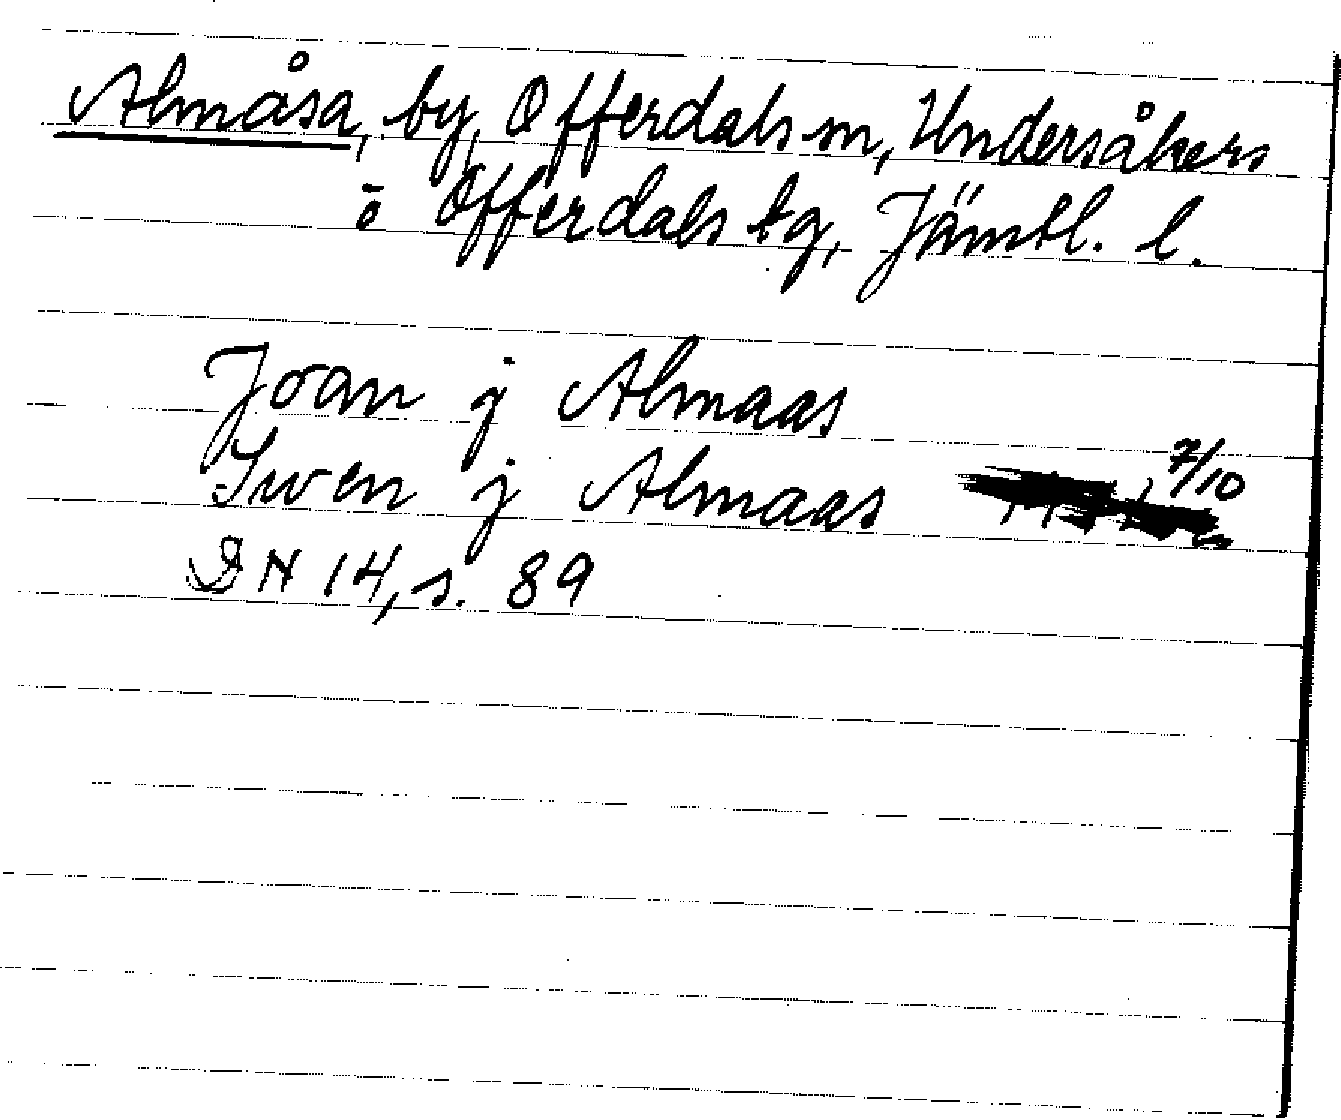 Almåsa, by, Offerdals sn, Undersåkers
o Offerdals tg, Jämtl. l.
Joan j Almaas
Swen j Almaas 7/10
DN 14, s. 89